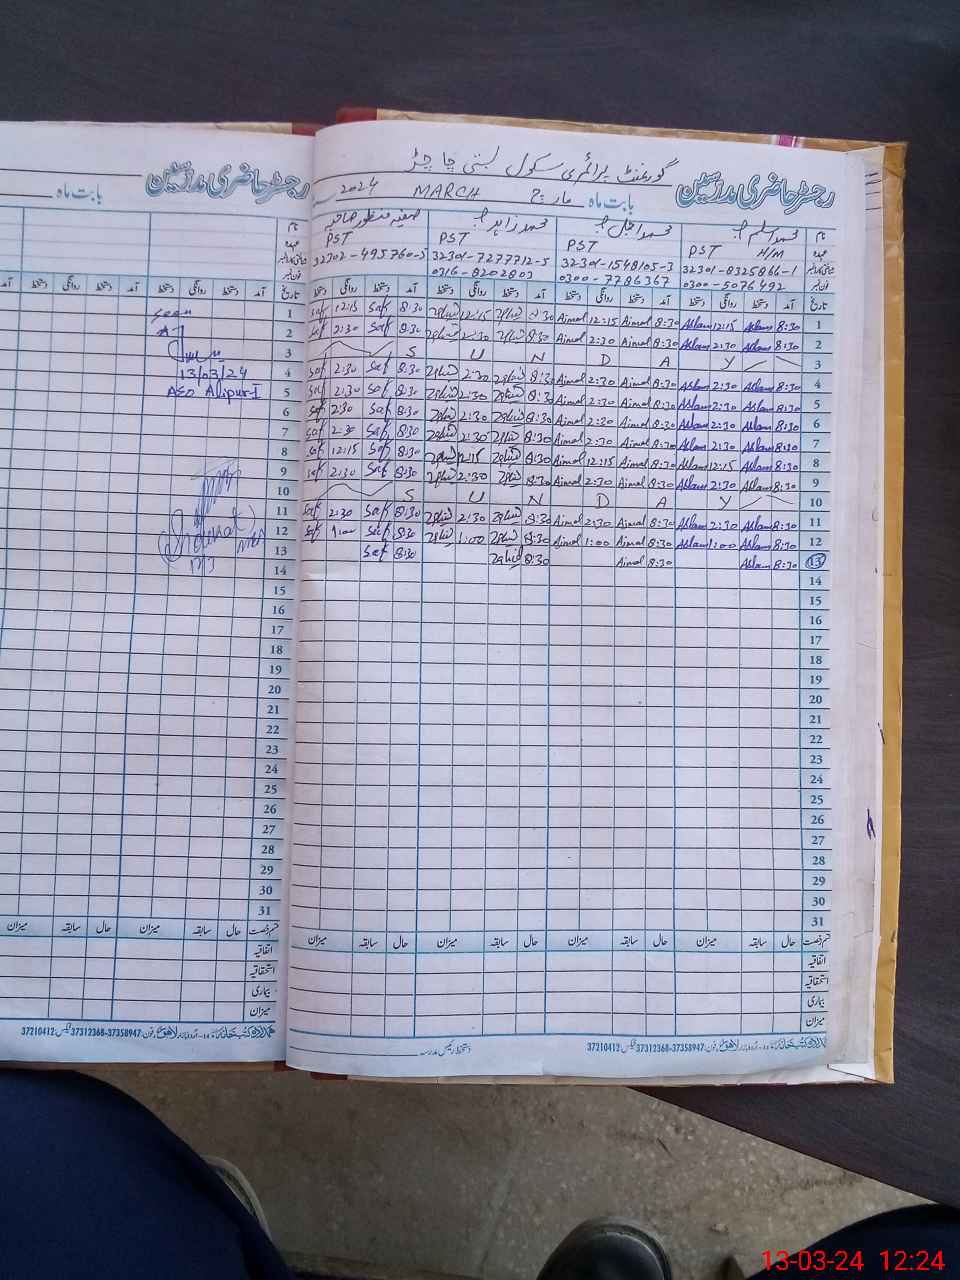 گورنمنٹ پرائمری سکول بستی چاچڑ
رجسٹر حاضری مدرسین بابت ماہ مارچ MARCH 2024
نام محمد اسلم محمد اجمل محمد زاہد صفیہ منظور صاحبہ
عہدہ PST H/M PST PST PST
32301-8325866-1 32301-1548105-3 32301-7277712-5 32302-495760-5
0300-5076492 0300-7786367 0316-8202803
تاریخ آمد دستخط روانگی دستخط آمد دستخط روانگی دستخط آمد دستخط روانگی دستخط آمد دستخط روانگی دستخط
1 8:30 Aslam 12:15 Aslam 8:30 Ajmal 12:15 Ajmal 8:30 Zahid 12:15 Zahid 8:30 Saf 12:15 Saf
2 8:30 Aslam 2:30 Aslam 8:30 Ajmal 2:30 Ajmal 8:30 Zahid 2:30 Zahid 8:30 Saf 2:30 Saf
3 S U N D A Y
4 8:30 Aslam 2:30 Aslam 8:30 Ajmal 2:30 Ajmal 8:30 Zahid 2:30 Zahid 8:30 Saf 2:30 Saf
5 8:30 Aslam 2:30 Aslam 8:30 Ajmal 2:30 Ajmal 8:30 Zahid 2:30 Zahid 8:30 Saf 2:30 Saf
6 8:30 Aslam 2:30 Aslam 8:30 Ajmal 2:30 Ajmal 8:30 Zahid 2:30 Zahid 8:30 Saf 2:30 Saf
7 8:30 Aslam 2:30 Aslam 8:30 Ajmal 2:30 Ajmal 8:30 Zahid 2:30 Zahid 8:30 Saf 2:30 Saf
8 8:30 Aslam 12:15 Aslam 8:30 Ajmal 12:15 Ajmal 8:30 Zahid 12:15 Zahid 8:30 Saf 12:15 Saf
9 8:30 Aslam 2:30 Aslam 8:30 Ajmal 2:30 Ajmal 8:30 Zahid 2:30 Zahid 8:30 Saf 2:30 Saf
10 S U N D A Y
11 8:30 Aslam 2:30 Aslam 8:30 Ajmal 2:30 Ajmal 8:30 Zahid 2:30 Zahid 8:30 Saf 2:30 Saf
12 8:30 Aslam 1:00 Aslam 8:30 Ajmal 1:00 Ajmal 8:30 Zahid 1:00 Zahid 8:30 Saf 1:00 Saf
13 8:30 Aslam 8:30 Ajmal 8:30 Zahid 8:30 Saf
14
15
16
17
18
19
20
21
22
23
24
25
26
27
28
29
30
31
قسم رخصت حال سابقہ میزان حال سابقہ میزان حال سابقہ میزان حال سابقہ میزان
اتفاقیہ
استحقاقیہ
بیماری
میزان
فون: 37358947-37312368 فیکس: 37210412
دستخط رئیس مدرسہ
رجسٹر حاضری مدرسین بابت ماہ
نام
عہدہ
تاریخ آمد دستخط روانگی دستخط آمد دستخط روانگی دستخط آمد
1 Seen
2
3
4 13/03/24
5 AEO Alipur-I
6
7
8
9
10
11
12
13
14
15
16
17
18
19
20
21
22
23
24
25
26
27
28
29
30
31
قسم رخصت حال سابقہ میزان حال سابقہ میزان
اتفاقیہ
استحقاقیہ
بیماری
میزان
فون: 37358947-37312368 فیکس: 37210412
13-03-24 12:24